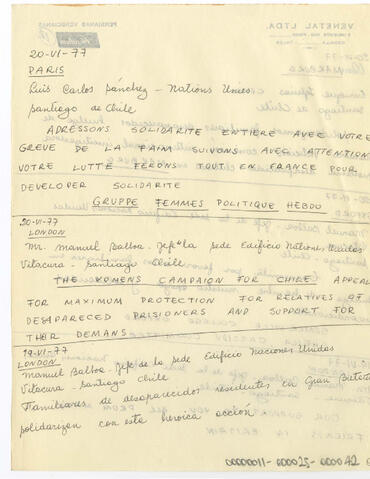 20-VI-77
PARIS
Luis Carlos Sánchez - Nations Unies
Santiago de Chile
ADRESSONS SOLIDARITE ENTIERE AVEC VOTRE
GREVE DE LA FAIM SUIVONS AVEC ATTENTION
VOTRE LUTTE FERONS TOUT EN FRANCE POUR
DEVELOPER SOLIDARITE
GRUPPE FEMMES POLITIQUE HEBDO
20-VI-77
LONDON
Mr. Manuel Balboa - Jefe la sede Edificio Nations Unidas
Vitacura - Santiago Chile
THE WOMENS CAMPAIGN FOR CHILE APPEAL
FOR MAXIMUM PROTECTION FOR RELATIVES OF
DESAPARECED PRISIONERS AND SUPPORT FOR
THEIR DEMANS
19-VI-77
LONDON
Manuel Balboa - Jefe de la sede Edificio Naciones Unidas
Vitacura - Santiago Chile
Familiares de desaparecidos residentes en Gran Bretaña
solidarizan con esta heroica acción
00000011-000025-000042